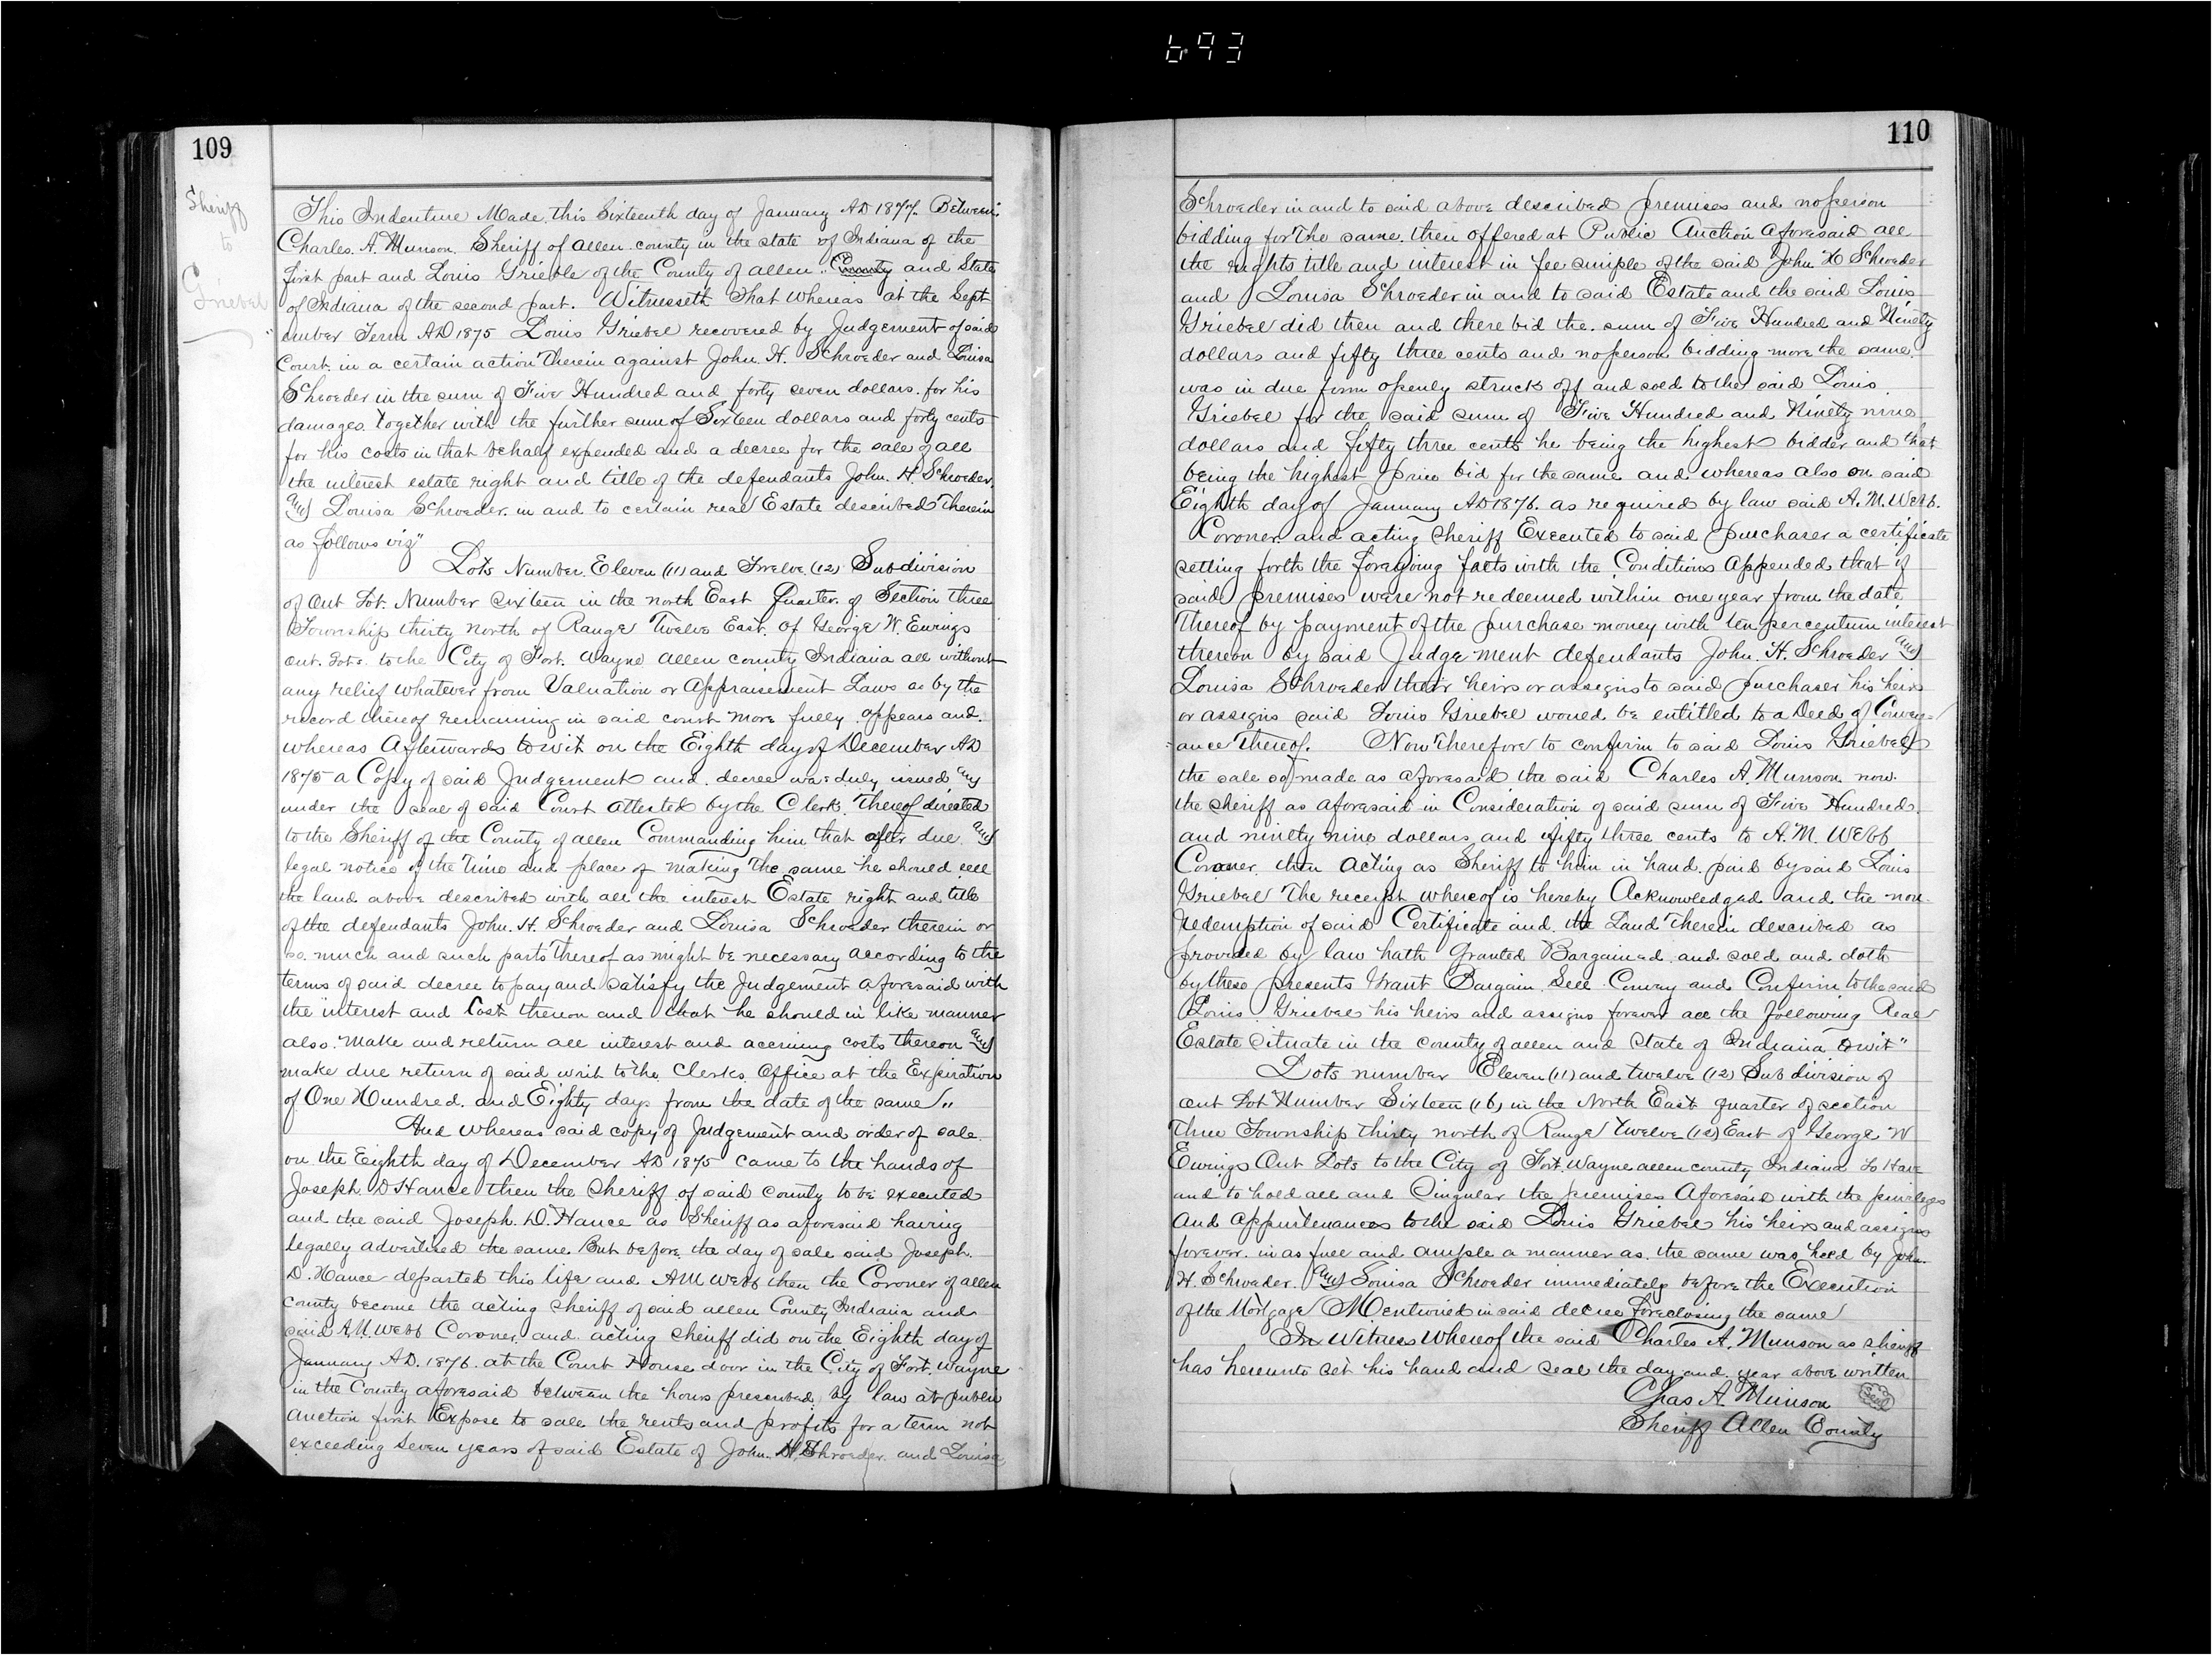 693
109
Sheriff
to
Griebel
This Indenture Made this Sixteenth day of January AD 1877. Between
Charles. A. Munson. Sheriff of allen county in the state of Indiana of the
first part and Louis Grieble of the County of allen. County and State
of Indiana of the second part. Witnesseth That whereas at the Sept
ember Term AD 1875 Louis Griebel recovered by Judgement of said
Court. in a certain action Therein against John. H. Schroeder and Louisa
Schroeder in the sum of Five Hundred and forty seven dollars. for his
damages. together with the further sum of Sixteen dollars and forty cents
for his costs in that behalf expended and a decree for the sale of all
the interest estate right and title of the defendants John. H. Schroeder.
and Louisa Schroeder. in and to certain real Estate described Therein
as follows viz"
Lots Number. Eleven (11) and Twelve. (12) Subdivision
of Out Lot. Number sixteen in the north East Quarter. of Section three
Township thirty north of Range Twelve East. Of George W. Ewings
Out. Lots. to the City of Fort. Wayne allen county Indiana all without
any relief whatever from Valuation or Appraisement Laws as by the
record thereof remaining in said court more fully. appears and.
whereas Afterwards to wit on the Eighth day of December AD
1875 a Copy of said Judgement and. decree was duly issued and
under the seal of said Court attested by the Clerk. Thereof directed
to the Sheriff of the County of allen Commanding him that after due and
legal notice of the Time and place of making the same he should sell
the land above described with all the interest Estate right and title
of the defendants John. H. Schroeder and Louisa Schroeder therein or
so. much and such parts Thereof as might be necessary according to the
terms of said decree to pay and satisfy the Judgement aforesaid with
the interest and Cost thereon and that he should in like manner
also. Make and return all interest and accruing costs thereon and
make due return of said writ to the Clerks Office at the Expiration
of One Hundred. and Eighty days from the date of the same"
And whereas said copy of Judgement and order of sale.
on the Eighth day of December AD 1875 came to the hands of
Joseph. D Hance then the Sheriff of said county to be executed
and the said Joseph. D. Hance as Sheriff as aforesaid having
legally advertised the same. But before the day of sale said Joseph.
D. Hance departed this life and A M Webb then the Coroner of allen
county become the acting sheriff of said allen County Indiana and
said A. M. Webb Coroner. and. acting Sheriff did on the Eighth day of
January AD. 1876. at the Court House door in the City of Fort. Wayne
in the County aforesaid between the hours prescribed by law at public
auction first Expose to sale the rents and profits for a term not
exceeding seven years of said Estate of John. H. Schroeder. and Louisa
110
Schroeder in and to said above described premises and no person
bidding for the same. then offered at Public Auction aforesaid all
the rights title and interest in fee simple of the said John H Schroeder
and Louisa Schroeder in and to said Estate and the said Louis
Griebel did then and there bid the. sum of Five Hundred and Ninety
dollars and fifty three cents and no person bidding more the same.
was in due form openly struck off and sold to the said Louis
Griebel for the said sum of Five Hundred and Ninety nine
dollars and fifty three cents he being the highest bidder and that
being the highest price bid for the same and whereas also on said
Eighth day of January AD 1876. as required by law said A. M. Webb.
Coroner. and acting Sheriff Executed to said purchaser a certificate
setting forth the foregoing facts with the Conditions Appended that if
said premises were not redeemed within one year from the date
Thereof by payment of the purchase money with ten per centum interest
thereon by said Judgement defendants John. H. Schroeder and
Louisa Schroeder their heirs or assigns to said purchaser his heirs
or assigns said Louis Griebel would be entitled to a Deed of Convey=
ance Thereof. Now Therefore to confirm to said Louis Griebel
the sale so made as aforesaid the said Charles A. Munson now.
the sheriff as aforesaid in Consideration of said sum of Five Hundred.
and ninety nine dollars and fifty three cents to A. M. Webb
Coroner. then acting as Sheriff to him in hand. paid by said Louis
Griebel The receipt whereof is hereby Acknowledged and the non-
redemption of said Certificate and. the Land Therein described as
provided by law hath Granted Bargained. and sold and doth
by these presents Grant Bargain. Sell Convey and Confirm to the said
Louis Griebel his heirs and assigns forever all the following Real
Estate Situate in the county of allen and State of Indiana to wit"
Lots number Eleven (11) and twelve (12) Subdivision of
out Lot Number Sixteen (16) in the North East quarter of section
Three Township thirty north of Range Twelve (12) East of George W
Ewings Out Lots to the City of Fort. Wayne allen county Indiana To Have
and to hold all and Singular the premises Aforesaid with the privileges
and appurtenances to the said Louis Griebel his heirs and assigns
forever. in as full and ample a manner as. the same was held by John.
H. Schroeder. and Louisa Schroeder immediately before the Execution
of the Mortgage Mentioned in said decree foreclosing the same
In Witness Whereof the said Charles A. Munson as sheriff
has hereunto set his hand and seal the day and. year above written
Chas A. Munson Seal
Sheriff Allen County